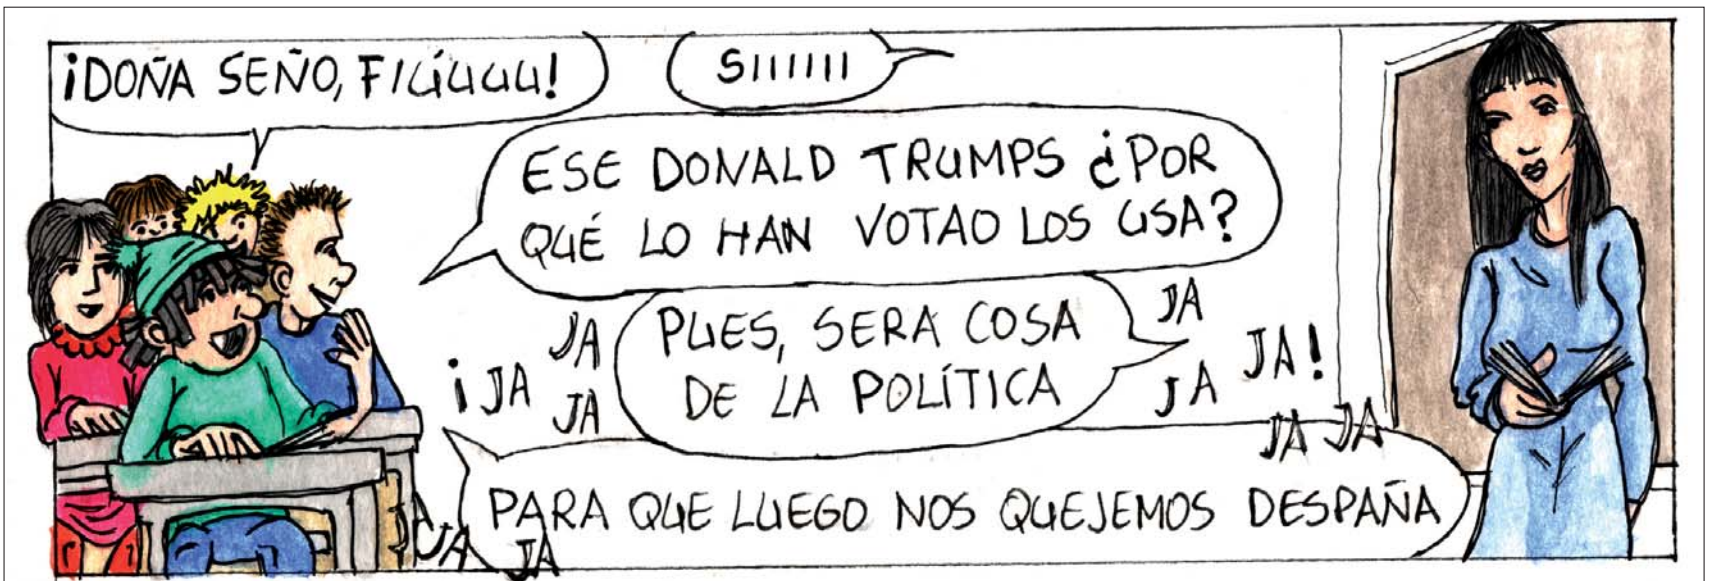 ¡DOÑA SEÑO, FIÚUUU!
SIIIIII
ESE DONALD TRUMPS ¿POR
QUÉ LO HAN VOTAO LOS USA?
PUES, SERA COSA
DE LA POLÍTICA
¡JA
JA
JA
JA
JA
JA!
JA JA
PARA QUE LUEGO NOS QUEJEMOS DESPAÑA
JA
JA
JA